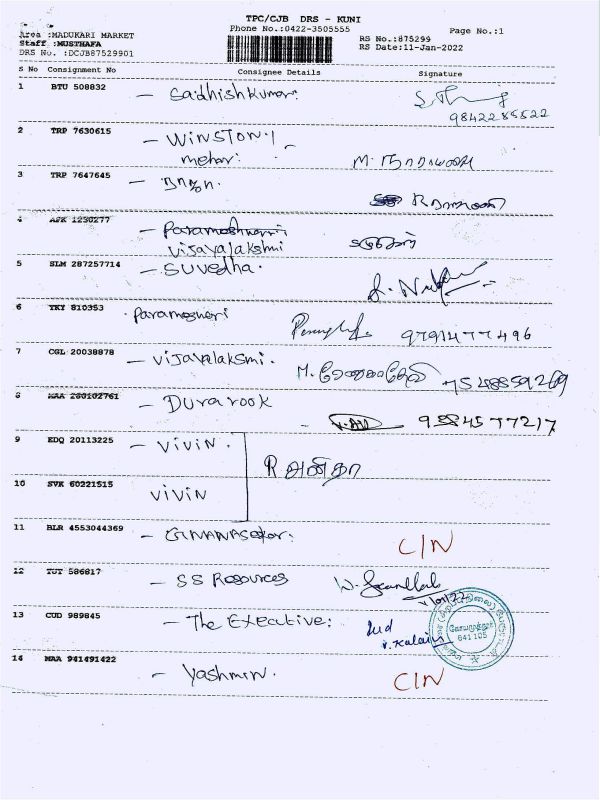 TPC/CJB DRS - KUNI
Phone No.:0422-3505555
Page No.:1
Area :MADUKARI MARKET
Staff :MUSTHAFA
DRS No. :DCJB87529901
RS No.:875299
RS Date:11-Jan-2022
S No Consignment No Consignee Details Signature
1 BTU 508832 - Sadhishkumar.
9842285522
2 TRP 7630615 - WINSTON
mehar.
3 TRP 7647645 - ராஜா.
4 ASK 1230277 - Parameshwari
vijayalakshmi
5 SLM 287257714 - Suvedha.
6 TKY 810353 Paramesheri
9791477496
7 CGL 20038878 - Vijayalaksmi.
7548859269
8 MAA 280102761 - Durarook
9584577217
9 EDQ 20113225 - VIVIN.
R அனிதா
10 SVK 60221515 VIVIN
11 BLR 4553044369 - GNANASekar. C/N
12 TUT 586817 - SS Resources
13 CUD 989845 - The Executive:
641 105
14 MAA 941491422 - Yashmin. C/N